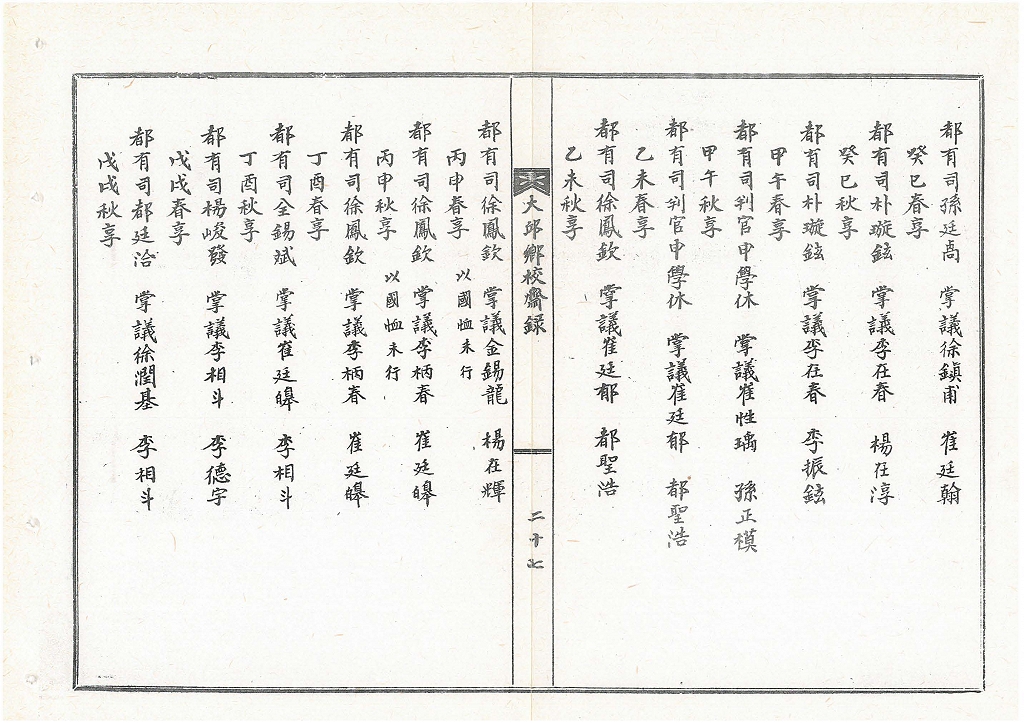 都有司孫廷卨 掌議徐鎮甫 崔廷翰
癸巳春享
都有司朴璇鉉 掌議李在春 楊在淳
癸巳秋享
都有司朴璇鉉 掌議李在春 李振鉉
甲午春享
都有司判官申學休 掌議崔性瑀 孫正模
甲午秋享
都有司判官申學休 掌議崔廷郁 都聖浩
乙未春享
都有司徐鳳欽 掌議崔廷郁 都聖浩
乙未秋享
大邱鄉校齋録
二十七
都有司徐鳳欽 掌議金錫龍 楊在輝
丙申春享 以國恤未行
都有司徐鳳欽 掌議李柄春 崔廷皞
丙申秋享 以國恤未行
都有司徐鳳欽 掌議李柄春 崔廷皞
丁酉春享
都有司全錫斌 掌議崔廷皞 李相斗
丁酉秋享
都有司楊峻發 掌議李相斗 李德宇
戊戌春享
都有司都廷洽 掌議徐潤基 李相斗
戊戌秋享